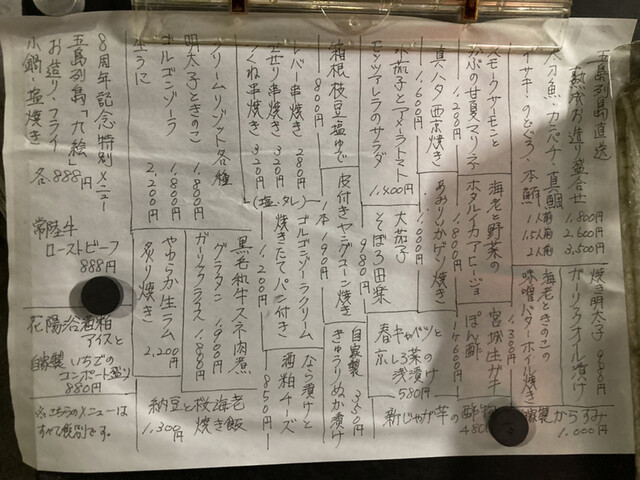 五島列島直送
熟成お造り盛合せ
太刀魚・カンパチ・真鯛
イサキ・のどぐろ・本鮪
1人前 1.800円
1.5人前 2.600円
2人前 3.500円
焼き明太子 980円
ガーリックオイル漬け
スモークサーモンと
かぶの甘夏マリネ
1.280円
海老と野菜の
ホタルイカアヒージョ
海老ときのこの
味噌バターホイル焼き
真ハタ西京焼き
1.600円
あおりいかゲソ焼き
1.000円
宮城生ガキ
ぽん酢
1ケ600円
小茄子とアメーラトマト
モッツァレラのサラダ
1.400円
大茄子
そぼろ田楽
980円
春キャベツと
京しろ菜の
浅漬け
580円
新じゃが芋の
自家製からすみ
1.000円
箱根枝豆塩ゆで
800円
皮付きヤングコーン焼き
1本190円
自家製
きゅうりぬか漬け
350円
レバー串焼き 280円
320円
つくね串焼き 320円
(塩・タレ)
ゴルゴンゾーラクリーム
焼きたてパン付き
1.200円
なら漬けと
酒粕チーズ
850円
クリームリゾット各種
明太子ときのこ
1.800円
ゴルゴンゾーラ
1.800円
生うに
2.200円
黒毛和牛スネ肉煮
グラタン 1.900円
ガーリックライス 1.800円
やわらか生ラム
炙り焼き
2.200円
納豆と桜海老
焼き飯
1.300円
8周年記念特別メニュー
五島列島「九絵」
お造り・フライ
小鍋・塩焼き
各888円
常陸牛
ローストビーフ
888円
花陽浴酒粕
アイスと
自家製いちごの
コンポート盛り
880円
※こちらのメニューは
すべて税別です。